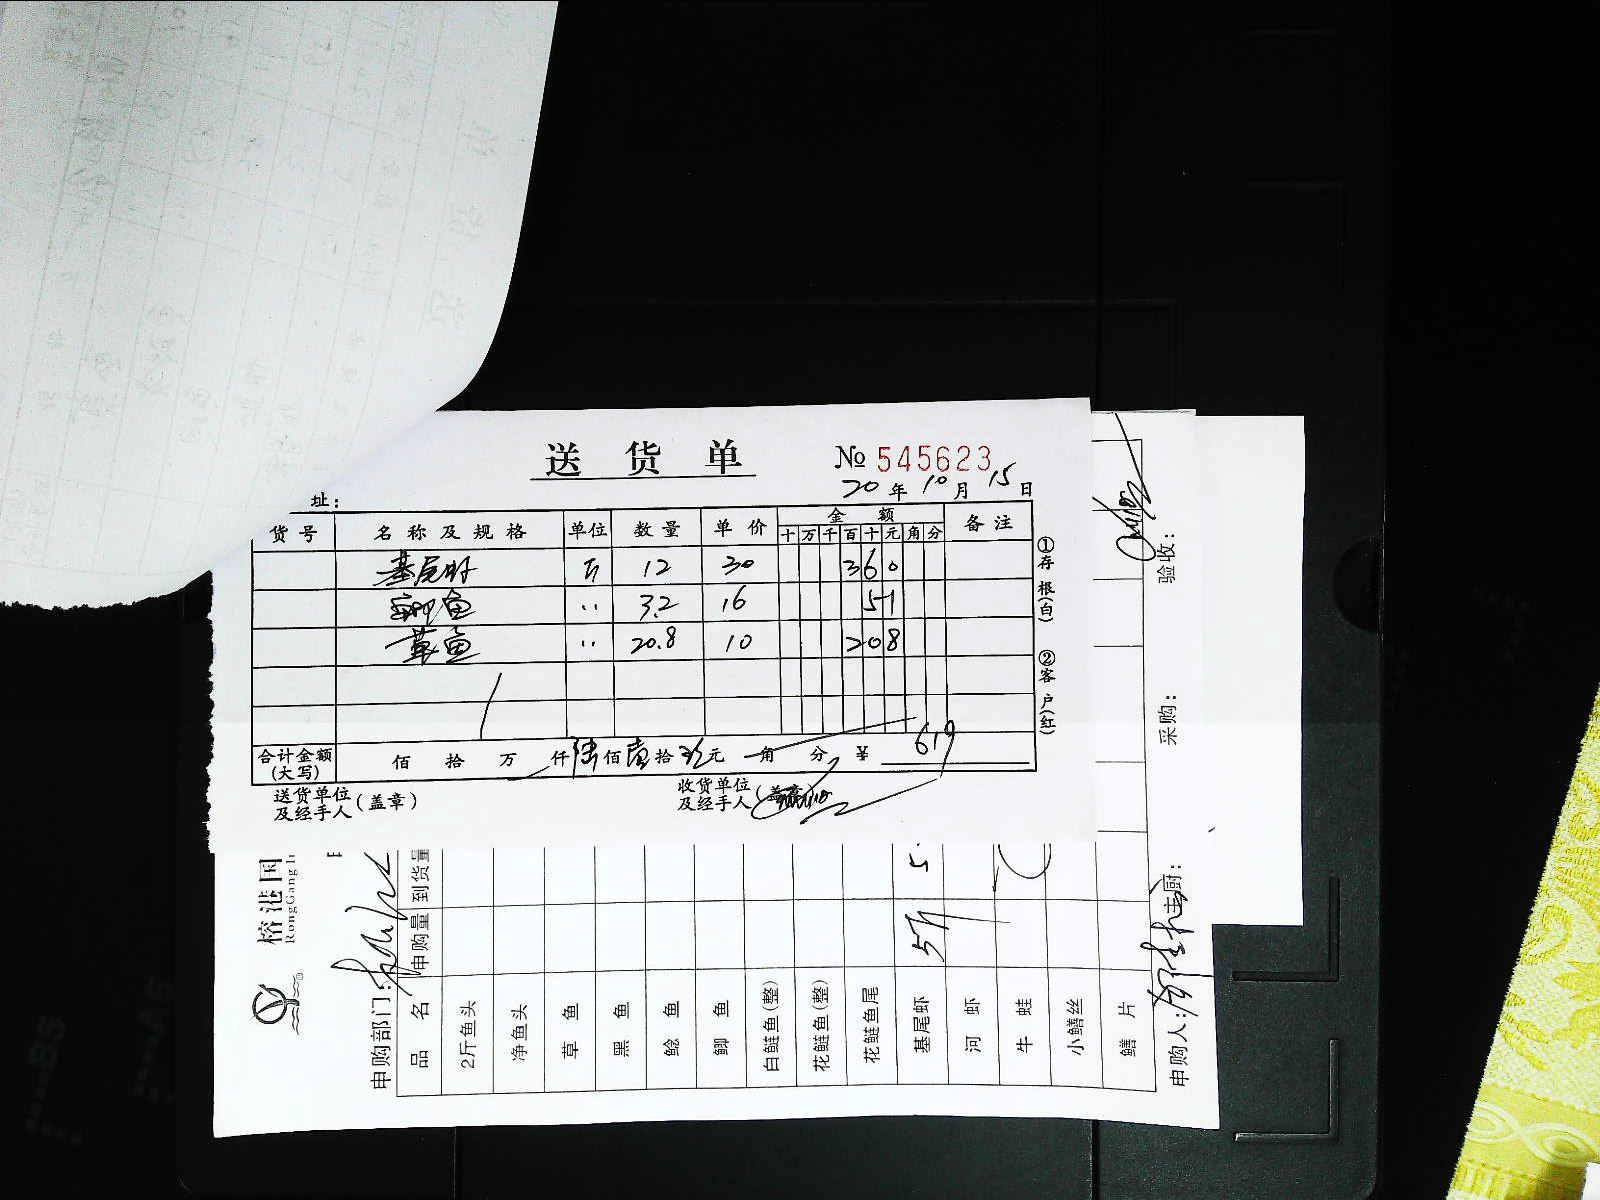 送 货 单
№ 545623
址：
20 年 10 月 15 日
货号 名称及规格 单位 数量 单价 金额 备注
十 万 千 百 十 元 角 分
基尾虾 斤 12 30 360
鲫鱼 〃 3.2 16 51
草鱼 〃 20.8 10 208
合计金额(大写) 佰 拾 万 仟 陆 佰 壹 拾 玖 元 角 分 ¥ 619
送货单位及经手人(盖章)
收货单位及经手人(盖章)
①存根(白)
②客户(红)
榕港国
RongGang I
申购部门：
品名 申购量 到货量
2斤鱼头
净鱼头
草鱼
黑鱼
鲶鱼
鲫鱼
白鲢鱼(整)
花鲢鱼(整)
花鲢鱼尾
基尾虾 5斤 5.
河虾
牛蛙
小鳝丝
鳝片
申购人：
主厨：
采购：
验收：